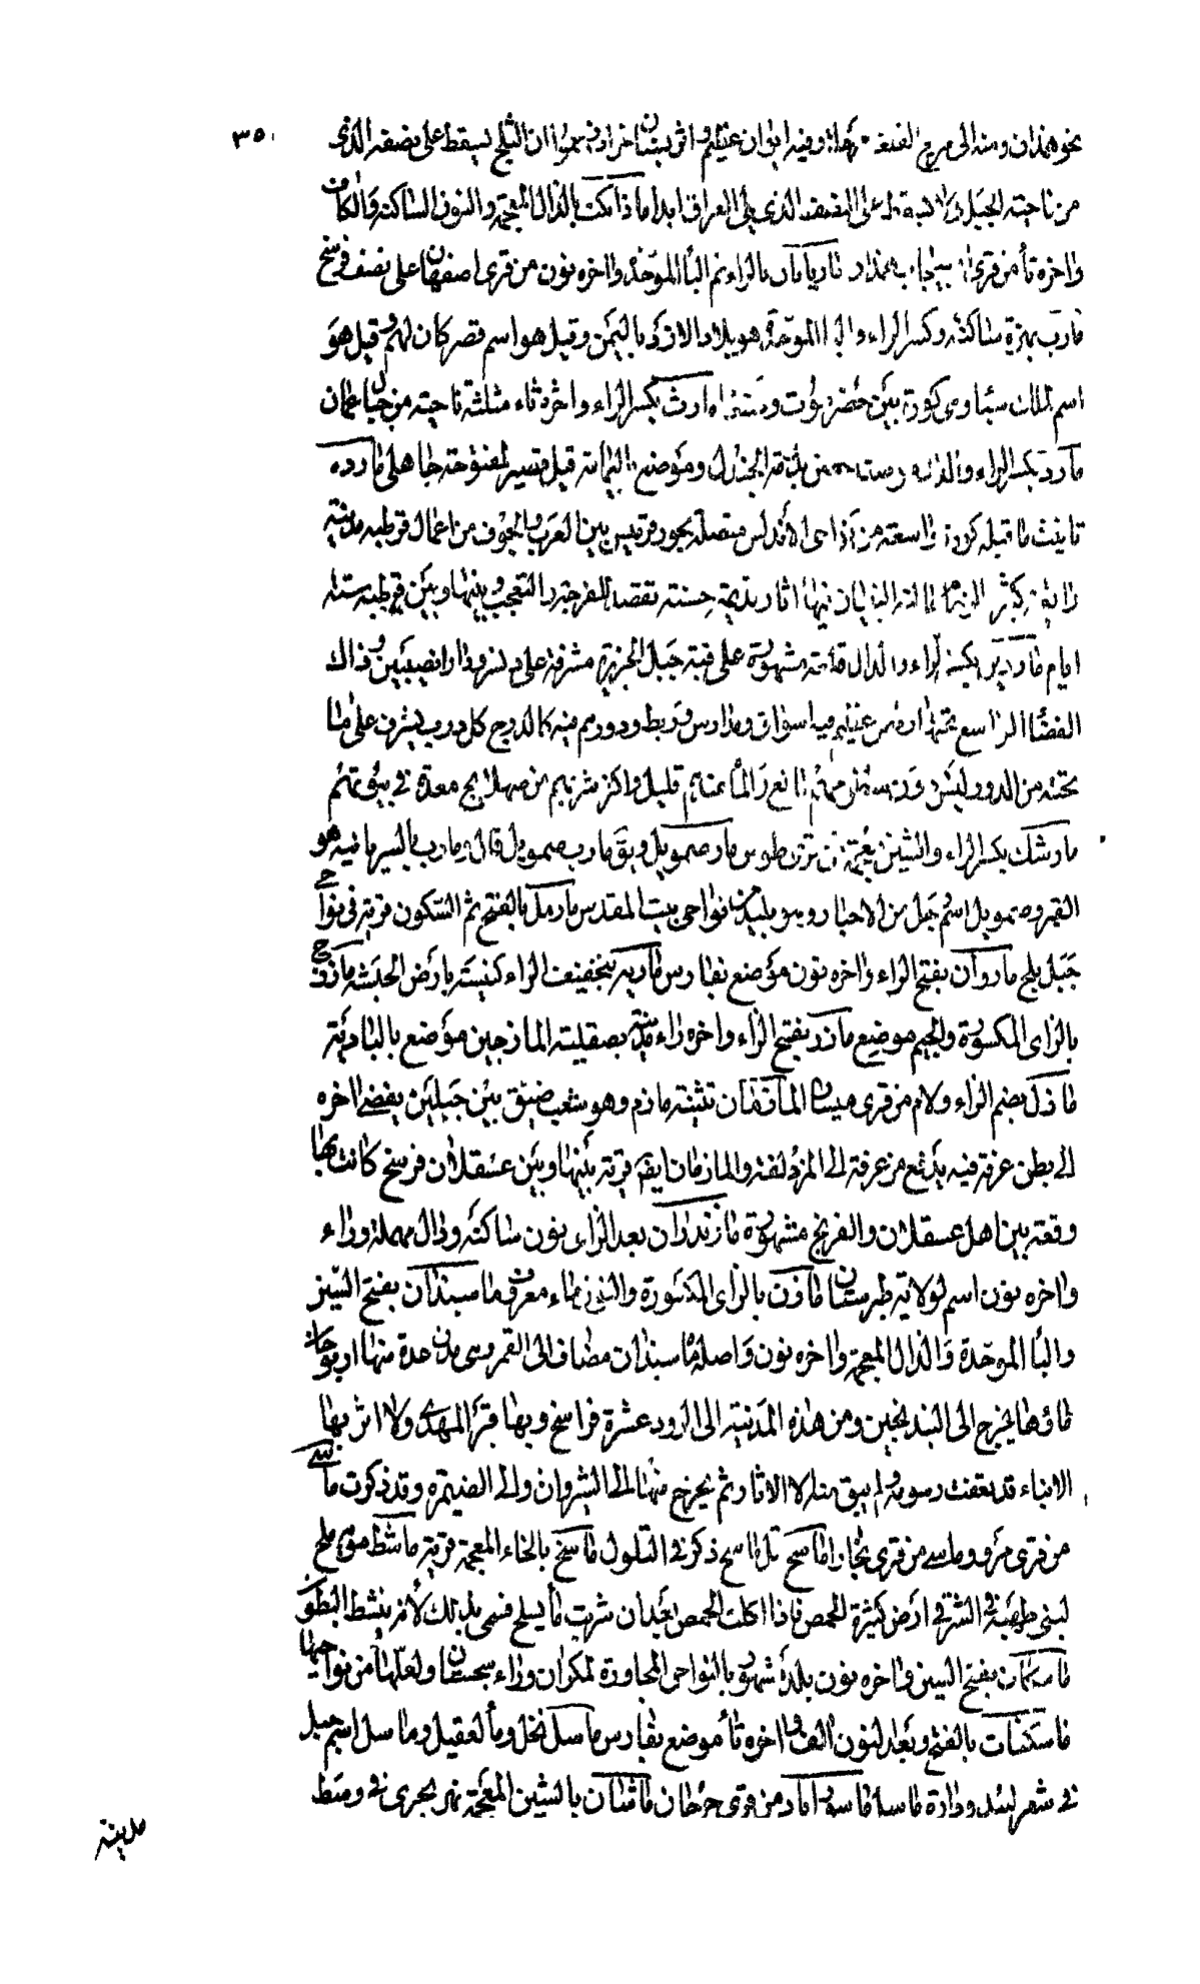 ٣٥٠
نحو همذان ومنه الى مرج القلعة وفيه ايوان عظيم واثر بستان خراب ان الثلج يسقط على نصفه الذى
من ناحية الجبل ولا يسقط على النصف الذى يلى العراق ابدا ماذانكت بالذال المعجمة والنون الساكنة والكاف
واخره تا من قرى ماربانان بالراء ثم البا الموحدة واخره نون من قرى اصفهان على نصف فرسخ
مارب بهمزة ساكنة وكسر الراء والبا الموحدة هو بلاد الازد باليمن وقيل هو اسم قصر كان لهم وقيل هو
اسم لملك سبا وهى كورة بين حضرموت وصنعا مارث بكسر الراء واخره ثاء مثلثة ناحية من جبال عمان
مارد بكسر الراء والدال دومة الجندل وموضع باليمامة قيل قصير لمعنوحة جاهلى مارده
تانيث ما قبله كورة واسعة من نواحى الاندلس متصلة بحوز فريس بين الغرب والجوف من اعمال قرطبة مدينة
رايقة كثير فيها اثار قديمة حسنة تقصد للفرجة والتعجب وبينها وبين قرطبة ستة
ايام ماردين بكسر الراء والدال قلعة مشهورة على قنة جبل الجزيرة مشرفة على دنيسر ودارا ونصيبين وذلك
الفضا الواسع تحتها ربض عظيم فيه اسواق ومدارس وربط ودورهم فيه كالدرج كل درب يشرف على ما
تحته من الدور وليس دون سطوحهم مانع والما عندهم قليل واكثر شربهم من صهاريج معدة فى بيوتهم
مارشك بكسر الراء والشين معجمة من قرى طوس مار صمويل ويق مارب صمويل قال ومارب بالسريانية هو
القس وصمويل اسم حبل من الاحبار وهو بليد من نواحى بيت المقدس مارمل بالفتح ثم السكون قرية فى نواحى
جبل بلخ ماروان بفتح الراء واخره نون موضع بفارس مارية بتخفيف الراء كنيسة بارض الحبشة مازج
بالزاى المكسورة والجيم موضع مازر بفتح الزاء واخره راء مدينة بصقلية المازجين موضع بالبادية
مازل بضم الزاء ولام من قرى نيسابور المازمان تثنية مازم وهو شعب ضيق بين جبلين يفضى اخره
الى بطن عرنة فيه يدفع من عرفة الى المزدلفة والمازمان ايضا قرية بينها وبين عسقلان فرسخ كانت بها
وقعة بين اهل عسقلان والفرنج مشهورة مازندران بعد الزاى نون ساكنة ودال مهملة وراء
واخره نون اسم لولاية طبرستان مازن بالزاى المكسورة والنون ماء معروف ماسبذان بفتح السين
والبا الموحدة والذال المعجمة واخره نون واصله ماه سبذان مضاف الى القمر وهى مدن عدة منها اريوجان
ماؤها يخرج الى البندنيجين ومن هذه المدينة الى الرود عشرة فراسخ وبها قبر المهدى ولا اثر بها
الا بناء قد تعفت رسومه ولم يبق منه الا الاثار ثم يخرج منها الى الشيروان والى الصيمرة وقد ذكرت ماسى
من قرى مرو وماسى من قرى بخارا ماسح تل ماسح ذكر فى التلول ماسخ بالخاء المعجمة قرية ماسط مويه ملح
لبنى طهية فى السر فى ارض كثيرة الحمض فاذا اكلت الحمض بعد ان شربت ما يسلح فسمى بذلك لانه يمسط البطون
ماسكان بفتح السين واخره نون بلدة مشهورة بالنواحى المجاورة لمكران وراء سجستان ولعلها من نواحيها
ماسكنات بالفتح وبعد النون الف واخره تا موضع بفارس ماسل نخل وما لعقيل وماسل اسم جبل
فى شعر لبيد ودارة ماسل ماسوراباد من قرى جرجان ماشان بالشين المعجمة نهر يجرى فى وسط
مدينة